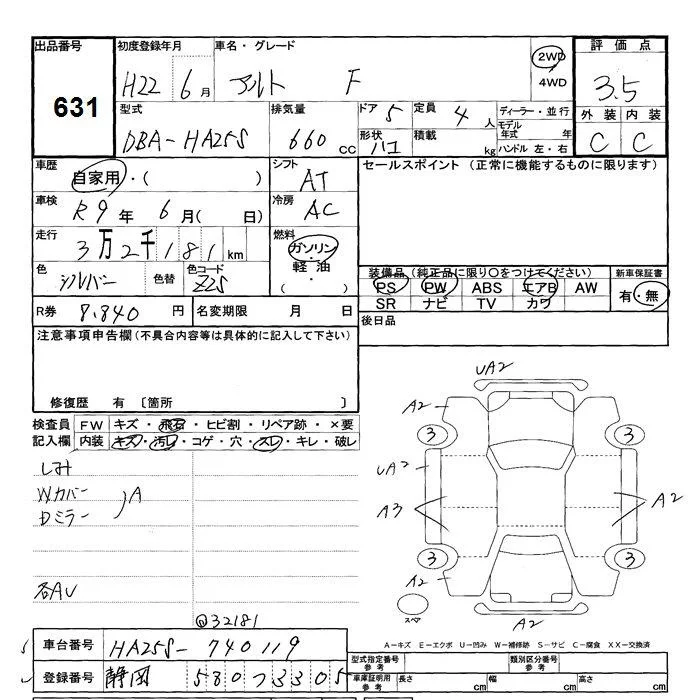 出品番号 初度登録年月 車名・グレード 評価点
631 H22 6月 アルト F 2WD 4WD 3.5
外装 内装
C C
型式 排気量 ドア 5 定員 4人 ディーラー・並行
DBA-HA25S 660cc 形状 ハコ 積載 kg モデル年式 年
ハンドル 左・右
車歴 シフト セールスポイント (正常に機能するものに限ります)
自家用・( ) AT
車検 冷房
R9年 6月( 日) AC
走行 燃料
3万2千181km ガソリン・
色 色替 色コード 軽油・
シルバー Z2S ( )
装備品 (純正品に限り○をつけてください) 新車保証書
PS PW ABS エアB AW 有・無
SR ナビ TV カワ
R券 8.840円 名変期限 月 日 後日品
注意事項申告欄 (不具合内容等は具体的に記入して下さい)
修復歴 有 〔箇所 〕
検査員 FW キズ・飛石・ヒビ割・リペア跡・×要
記入欄 内装 キズ・汚レ・コゲ・穴・スレ・キレ・破レ
しみ
Wカバー
Dミラー
A
UA2
A2
3 3
UA2
A3 A2
3 3
A2
A2
スペア
@32181
A-キズ E-エクボ U-凹み W-補修跡 S-サビ C-腐食 XX-交換済
車台番号 HA25S-740119
登録番号 静岡 580 3305
型式指定番号 参考 類別区分番号 参考
車庫証明用 参考 長さ cm 幅 cm 高さ cm